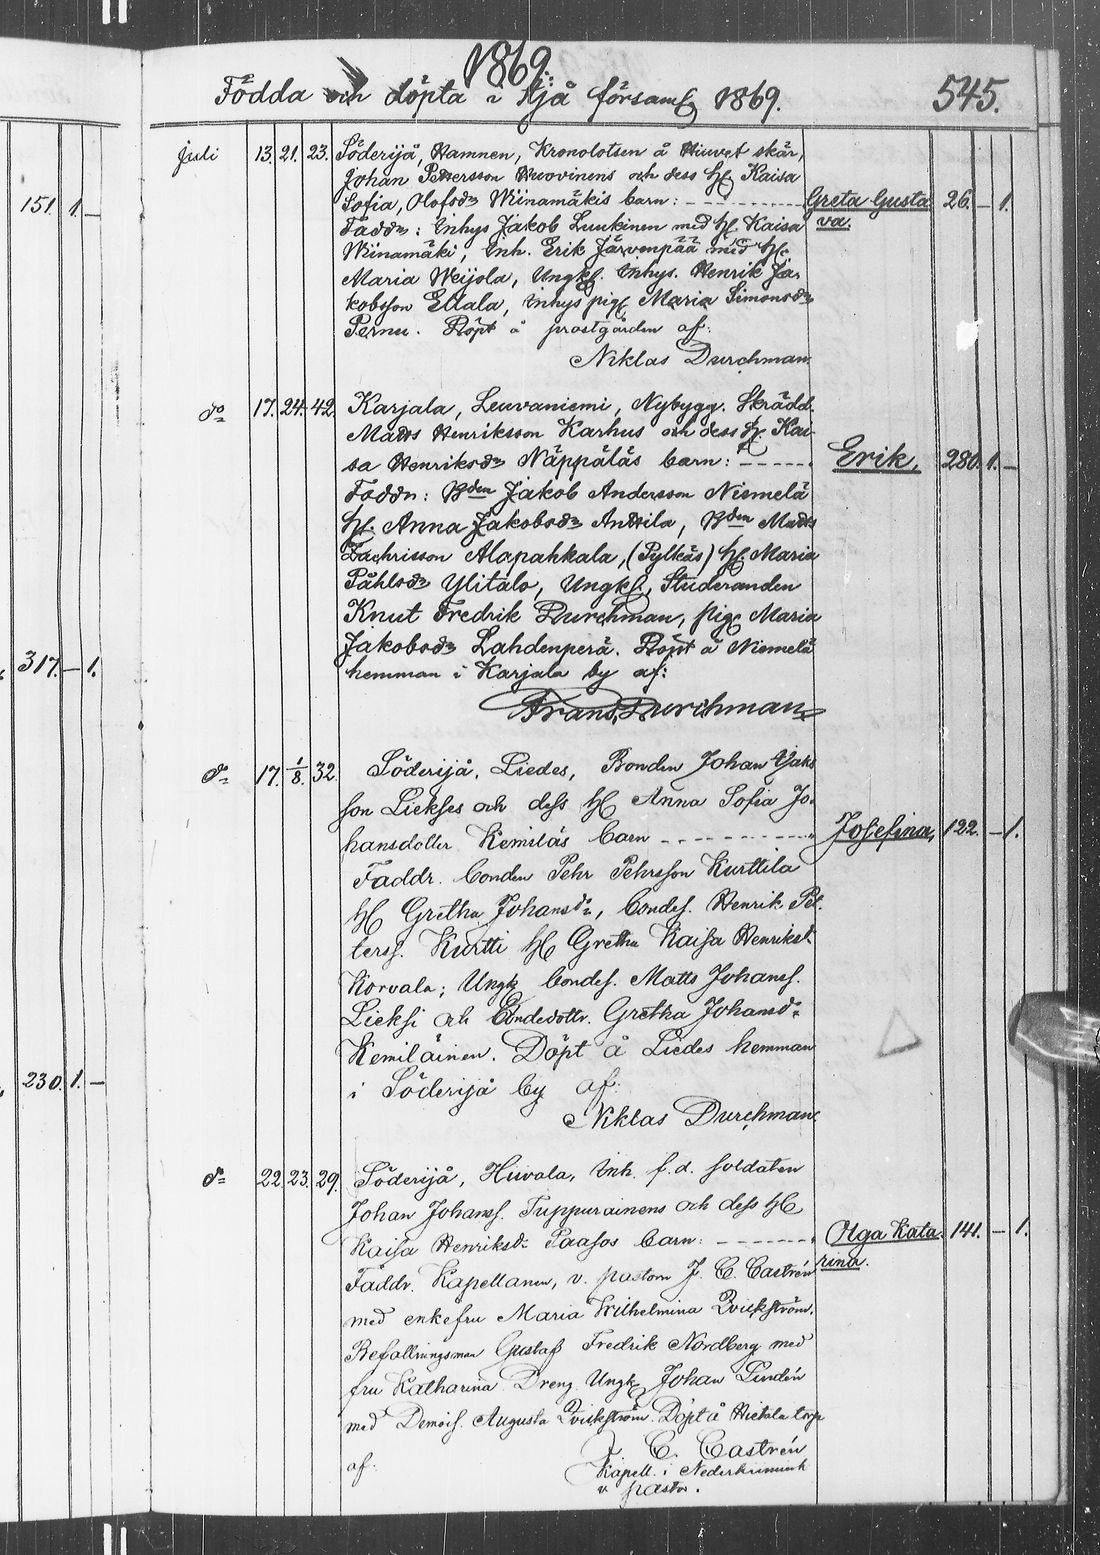 1869.
Födda och döpta i Ijå församl 1869. 545.
151. 1. –
317. – 1.
230. 1. –
Juli 13. 21. 23. Söderijå, Hamnen, Kronolotsen å Hiuvet skär,
Johan Pettersson Huovinens och dess H. Kaisa
Sofia, Olofsdr Wiinamäkis barn: Greta Gusta 26. – 1.
va.
Faddr: Inhys Jakob Luukinen med H. Kaisa
Wiinamäki, Inh. Erik Järvenpää med H.
Maria Weijola, Ungk. Inhys. Henrik Ja-
kobsson Ellala, Inhys pig. Maria Simonsdr
Pernu. Döpt å prostgården af:
Niklas Durchman.
do 17. 24. 42. Karjala, Leuvaniemi, Nybygg. Skrädd.
Matts Henriksson Karhus och dess H. Kai-
sa Henriksdr Näppäläs barn: Erik, 280. 1. –
Faddr: Bden Jakob Andersson Niemelä
H. Anna Jakobsdr Anttila, Bden Matts
Zachrisson Alapahkala, (Pylkäs) H. Maria
Påhlsdr Ylitalo, Ungk., Studeranden
Knut Fredrik Durchman, pig. Maria
Jakobsdr Lahdenperä. Döpt å Niemelä
hemman i Karjala by af:
Frans Durchman
do 17. 1/8. 32. Söderijå, Liedes, Bonden Johan Jaks
son Liekses och dess H. Anna Sofia Jo-
hansdotter Kemiläs barn Josefina, 122. – 1.
Faddr. bonden Pehr Pehrsson Kurttila
H. Gretha Johansdr, bondes. Henrik Pet-
terss. Kurtti H. Gretha Kaisa Henriksd.
Korvala; Ungk bondes. Matts Johanss.
Lieksi och bondedottr. Gretha Johansdr
Kemiläinen. Döpt å Liedes hemman
i Söderijå by af:
Niklas Durchman.
do 22. 23. 29. Söderijå, Hiivala, Inh. f. d. soldaten
Johan Johanss. Tuppurainens och dess H.
Kaisa Henriksdr Paasos barn: Olga Kata 141. – 1.
rina.
Faddr. Kapellanen, v. pastorn J. C. Castrén
med enkefru Maria Wilhelmina Qvickström.
Befallningsman Gustaf Fredrik Nordberg med
fru Katharina. Dreng Ungk Johan Lindén
med Demois. Augusta Qvickström. Döpt å Hietala torp
af: J. C. Castrén
Kapell. i Nederkiminki
v. pastor.